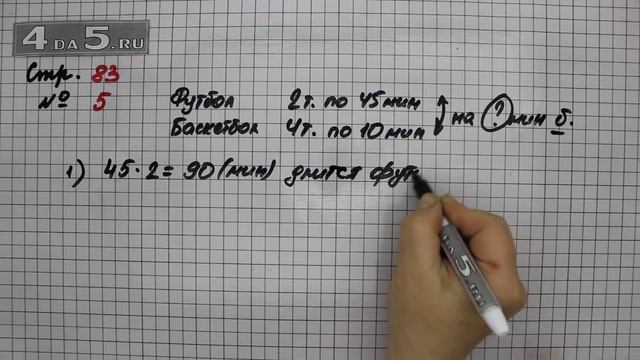 4DA5.RU
Стр. 83
№ 5
Футбол 2т. по 45 мин
Баскетбол 4т. по 10 мин
на ? мин б.
1) 45 · 2 = 90 (мин) длится фут
4DA5.RU